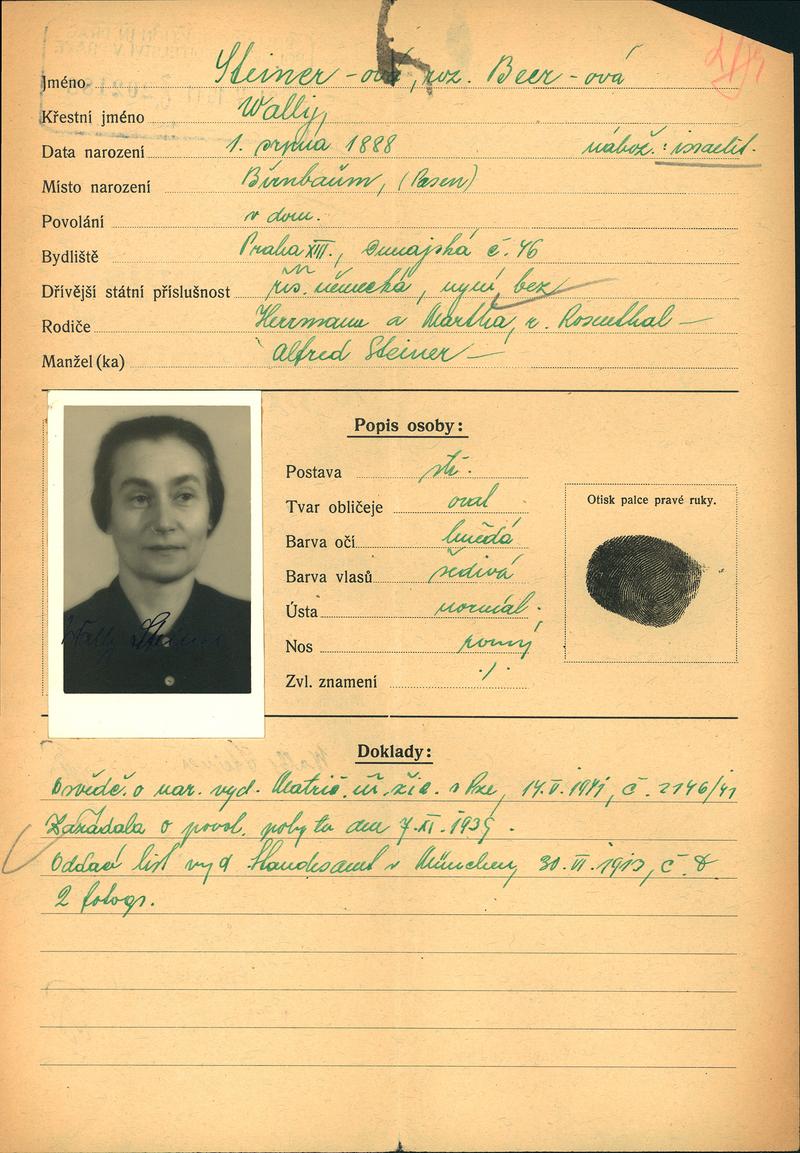 Jméno Steiner-ová, roz. Beer-ová
Křestní jméno Wally,
Data narození 1. srpna 1888 nábož.: israelit.
Místo narození Birnbaum, (Posen)
Povolání v dom.
Bydliště Praha XIII., Dunajská č. 46
Dřívější státní příslušnost říš. německá, nyní bez
Rodiče Herrmann a Martha, r. Rosenthal —
Manžel(ka) Alfred Steiner —
Popis osoby:
Postava stř.
Tvar obličeje oval
Barva očí hnědá
Barva vlasů šedivá
Ústa normál.
Nos rovný
Zvl. znamení ./.
Otisk palce pravé ruky.
Wally Steiner
Doklady:
Osvědč. o nar. vyd. Matrič. úř. žid. v Pze, 14.V.1941, č. 2146/41
Zažádala o povol. pobytu dne 7.XI.1939.
Oddací list vyd. Standesamt v München, 30.VI.1913, č.
2 fotogr.